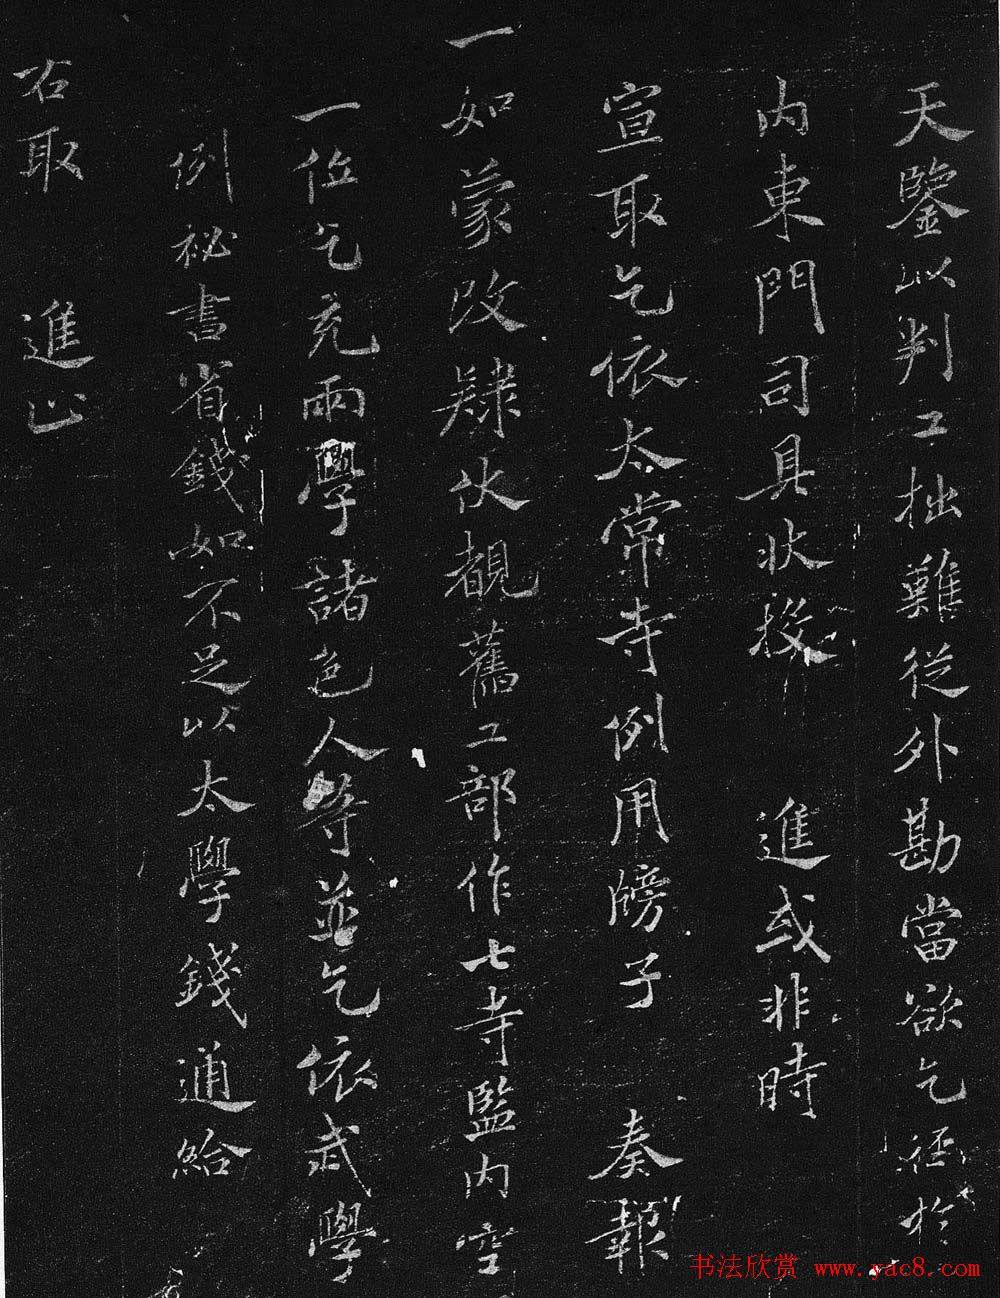 天鑒以判工拙難從外勘當欲乞徑於
内東門司具状投 進或非時
宣取乞依太常寺例用牓子 奏報
一如蒙改肄伏覩舊工部作七寺監内空
一位乞充兩學諸色人等並乞依武學
例祕書省錢如不足以太學錢通給
右取 進止
书法欣赏 www.yac8.com